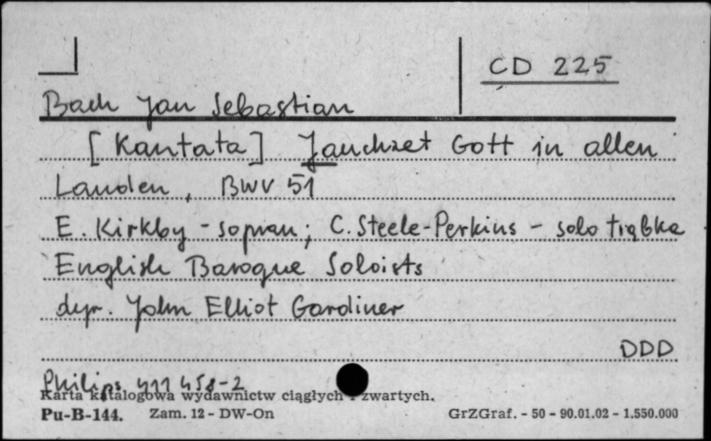 CD 225
Bach Jan Sebastian
[Kantata] Jauchzet Gott in allen
Landen, BWV 51
E. Kirkby - sopran; C. Steele-Perkins - solo trąbka
English Baroque Soloists
dyr. John Elliot Gardiner
DDD
Philips 411 458-2
Karta katalogowa wydawnictw ciągłych i zwartych.
Pu-B-144. Zam. 12 - DW-On GrZGraf. - 50 - 90.01.02 - 1.550.000